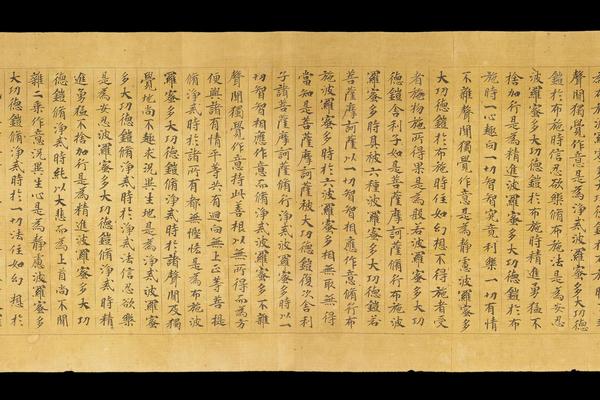 聲聞獨覺作意是為淨戒波羅蜜多大功德
鎧於布施時信忍欲樂脩布施法是為安忍
波羅蜜多大功德鎧於布施時精進勇猛不
捨加行是為精進波羅蜜多大功德鎧於布
施時一心趣向一切智智究竟利樂一切有情
不雜聲聞獨覺作意是為靜慮波羅蜜多
大功德鎧於布施時住如幻想不得施者受
者施物施所得果是為般若波羅蜜多大功
德鎧舍利子如是菩薩摩訶薩脩行布施波
羅蜜多時具被六種波羅蜜多大功德鎧若
菩薩摩訶薩以一切智智相應作意脩行布
施波羅蜜多時於六波羅蜜多相無取無得
當知是菩薩摩訶薩被大功德鎧復次舍利
子諸菩薩摩訶薩脩行淨戒波羅蜜多時以一
切智智相應作意而脩淨戒波羅蜜多不雜
聲聞獨覺作意持此善根以無所得而為方
便與諸有情平等共有迴向無上正等菩提
脩淨戒時於諸所有都無慳悋是為布施波
羅蜜多大功德鎧脩淨戒時於諸聲聞及獨
覺地尚不趣求況異生地是為淨戒波羅蜜
多大功德鎧脩淨戒時於淨戒法信忍欲樂
是為安忍波羅蜜多大功德鎧脩淨戒時精
進勇猛不捨加行是為精進波羅蜜多大功
德鎧脩淨戒時純以大悲而為上首尚不間
雜二乘作意況異生心是為靜慮波羅蜜多
大功德鎧脩淨戒時於一切法住如幻想於